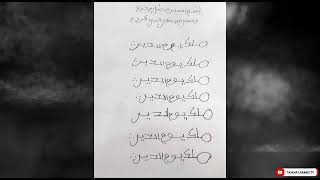 بسم الله الرحمن الرحيم
ملك يوم الدين
ملك يوم الدين
ملك يوم الدين
ملك يوم الدين
ملك يوم الدين
ملك يوم الدين
ملك يوم الدين